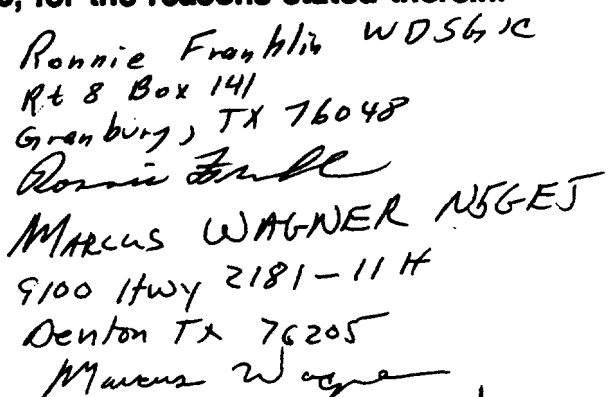 for the reasons stated therein.
Ronnie Franklin WD5GIC
Rt 8 Box 141
Granbury, TX 76048
Ronnie Franklin
MARCUS WAGNER N5GEJ
9100 Hwy 2181-11H
Denton Tx 76205
Marcus Wagner